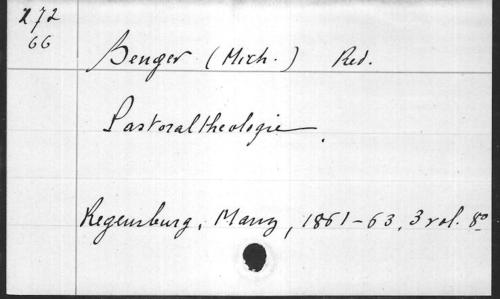 272
66
Benger (Mich.) Red.
Pastoraltheologie.
Regensburg, Manz, 1861-63, 3 vol. 8º